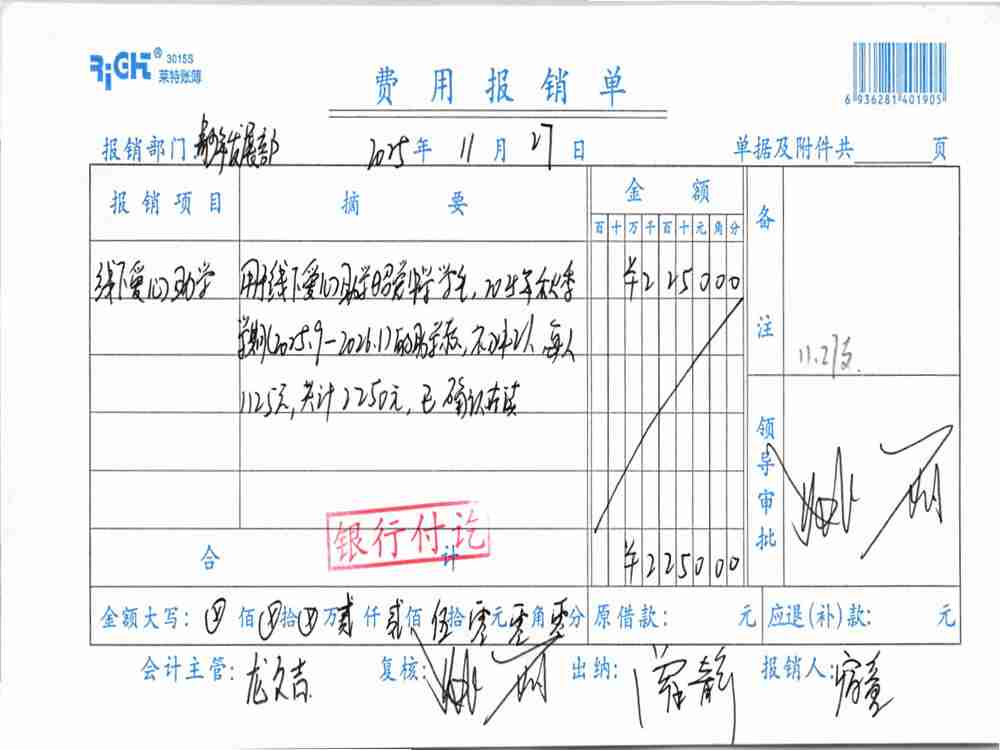 RiGHT® 3015S
莱特账簿
费用报销单
6 936281 401905
报销部门 发展部 2025年11月27日 单据及附件共 页
报销项目 摘要 金额 备注
百十万千百十元角分
线下爱心助学 用于线下爱心助学昭觉中学学生,2025年秋季 ¥225000
学期(2025.9-2026.1)的助学款,本次2人,每人
1125元,共计2250元,已确认在读
11.27支
领导审批
银行付讫
合计 ¥225000
金额大写: 佰 拾 万贰仟贰佰伍拾零元零角零分 原借款: 元 应退(补)款: 元
会计主管:龙久吉 复核: 出纳: 报销人: